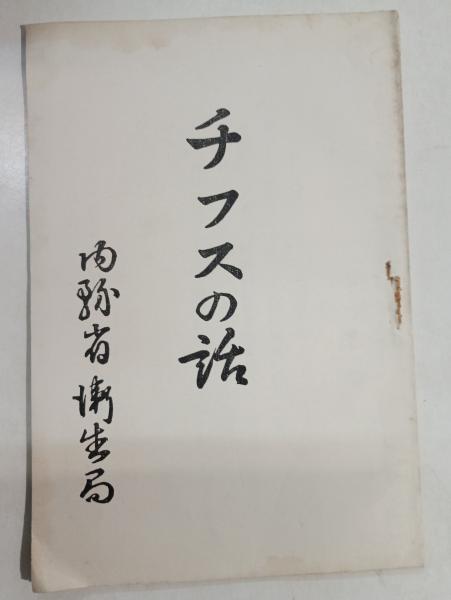 チフスの話
内務省衛生局